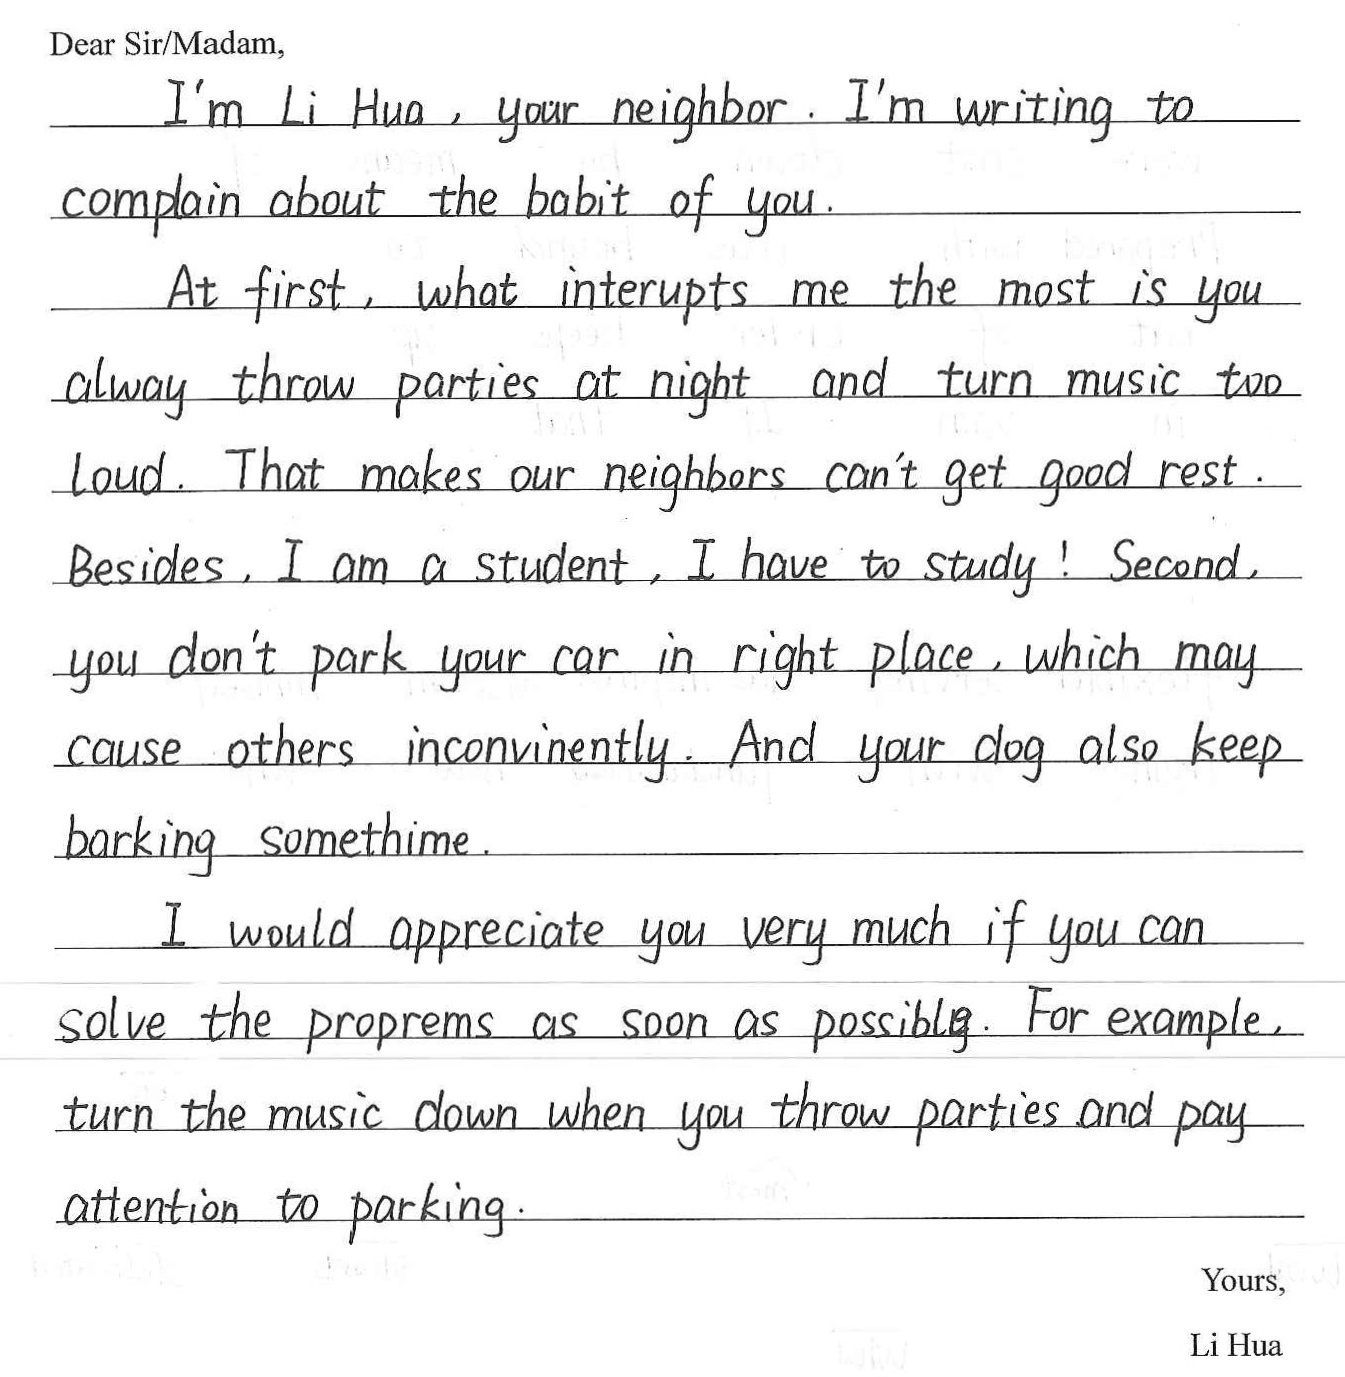 Dear Sir/Madam,
I'm Li Hua, your neighbor. I'm writing to
complain about the babit of you.
At first, what interupts me the most is you
alway throw parties at night and turn music too
loud. That makes our neighbors can't get good rest.
Besides, I am a student, I have to study! Second,
you don't park your car in right place, which may
cause others inconvinently. And your dog also keep
barking somethime.
I would appreciate you very much if you can
solve the proprems as soon as possible. For example,
turn the music down when you throw parties and pay
attention to parking.
Yours,
Li Hua